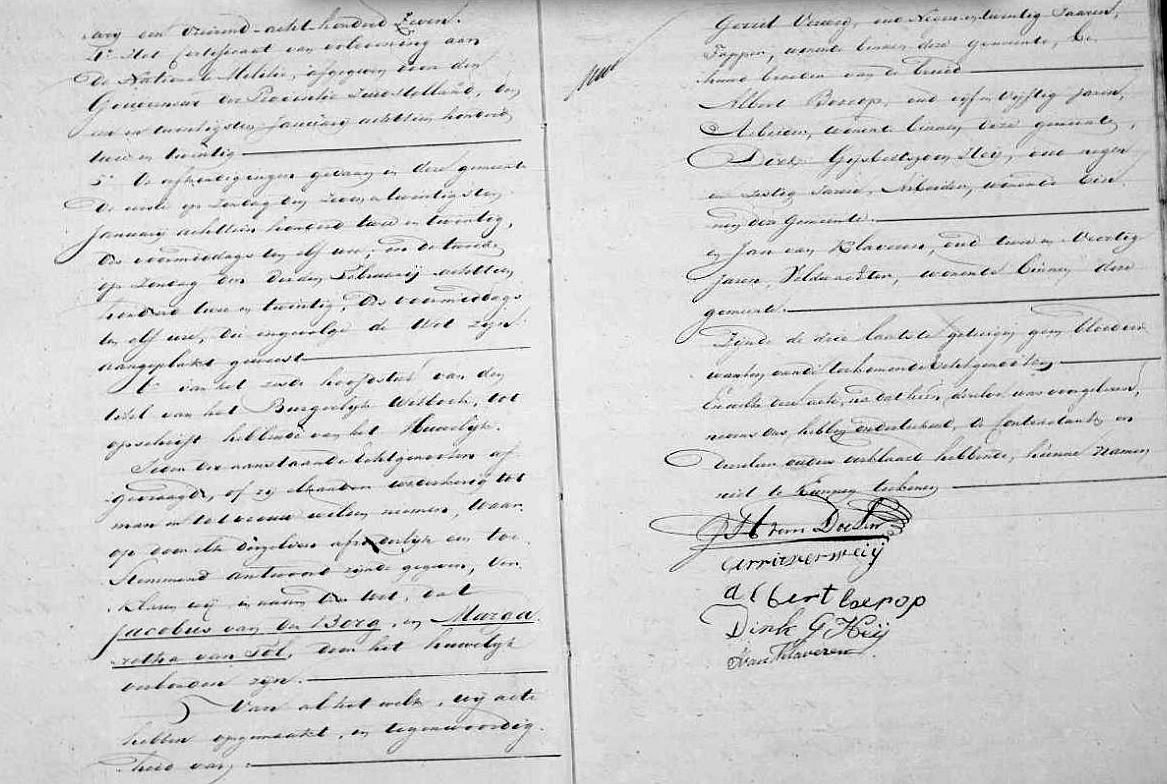 een duizend acht honderd Zeven.
4° Het certificaat van voldoening aan
De Nationale Militie, afgegeven door den
Gouverneur der Provincie Zuid Holland, den
een en twintigsten Januarij achttien honderd
twee en twintig
5° De afkondigingen gedaan in deze gemeente
De eerste op Zondag den zeven en twintigsten
Januarij achttien honderd twee en twintig,
des voormiddags ten elf ure, en de tweede
op Zondag den derden Februarij achttien
honderd twee en twintig, des voormiddags
ten elf ure, die ingevolge de Wet zijn
aangeplakt geweest
6° van het zesde hoofdstuk van den
titel van het Burgerlijk Wetboek, tot
opschrift hebbende van het Huwelijk.
Ieder der aanstaande Echtgenooten af
gevraagd, of zij elkander wederkeerig tot
man en tot vrouw willen nemen, Waar
op door elk derzelven afzonderlijk een toe
stemmend antwoord zijnde gegeven, Ver
klaren wij, in naam der Wet, dat
Jacobus van den Berg, en Marga
retha van Tol, door het huwelijk
verbonden zijn.
Van al het welk, wij acte
hebben opgemaakt, in tegenwoordig
heid van
Gerrit Verweij, oud Negen en twintig Jaaren,
Tapper, wonende binnen deze gemeente, be
huwd broeder van de bruid
Albert Boerop, oud vijf en vijftig Jaren,
Arbeider, wonende binnen deze gemeente,
Dirk Gijsbertszoon Heij, oud negen
en zestig Jaren, Arbeider, wonende bin
nen deze Gemeente.
en Jan van Klaveren, oud twee en Veertig
Jaren, Veldwachter, wonende binnen deze
gemeente.
Zijnde de drie laatste getuigen geen bloedver
wanten van de toekomende Echtgenooten
En welke deze acte, na dat hun dezelve was voorgelezen,
nevens ons hebben onderteekend, de Contractanten en
derzelver ouders verklaard hebbende, hunne Namen
niet te Kunnen teekenen
JH van Doelen
Gerrit verweij
albert boerop
Dirk G Heij
J van Klaveren